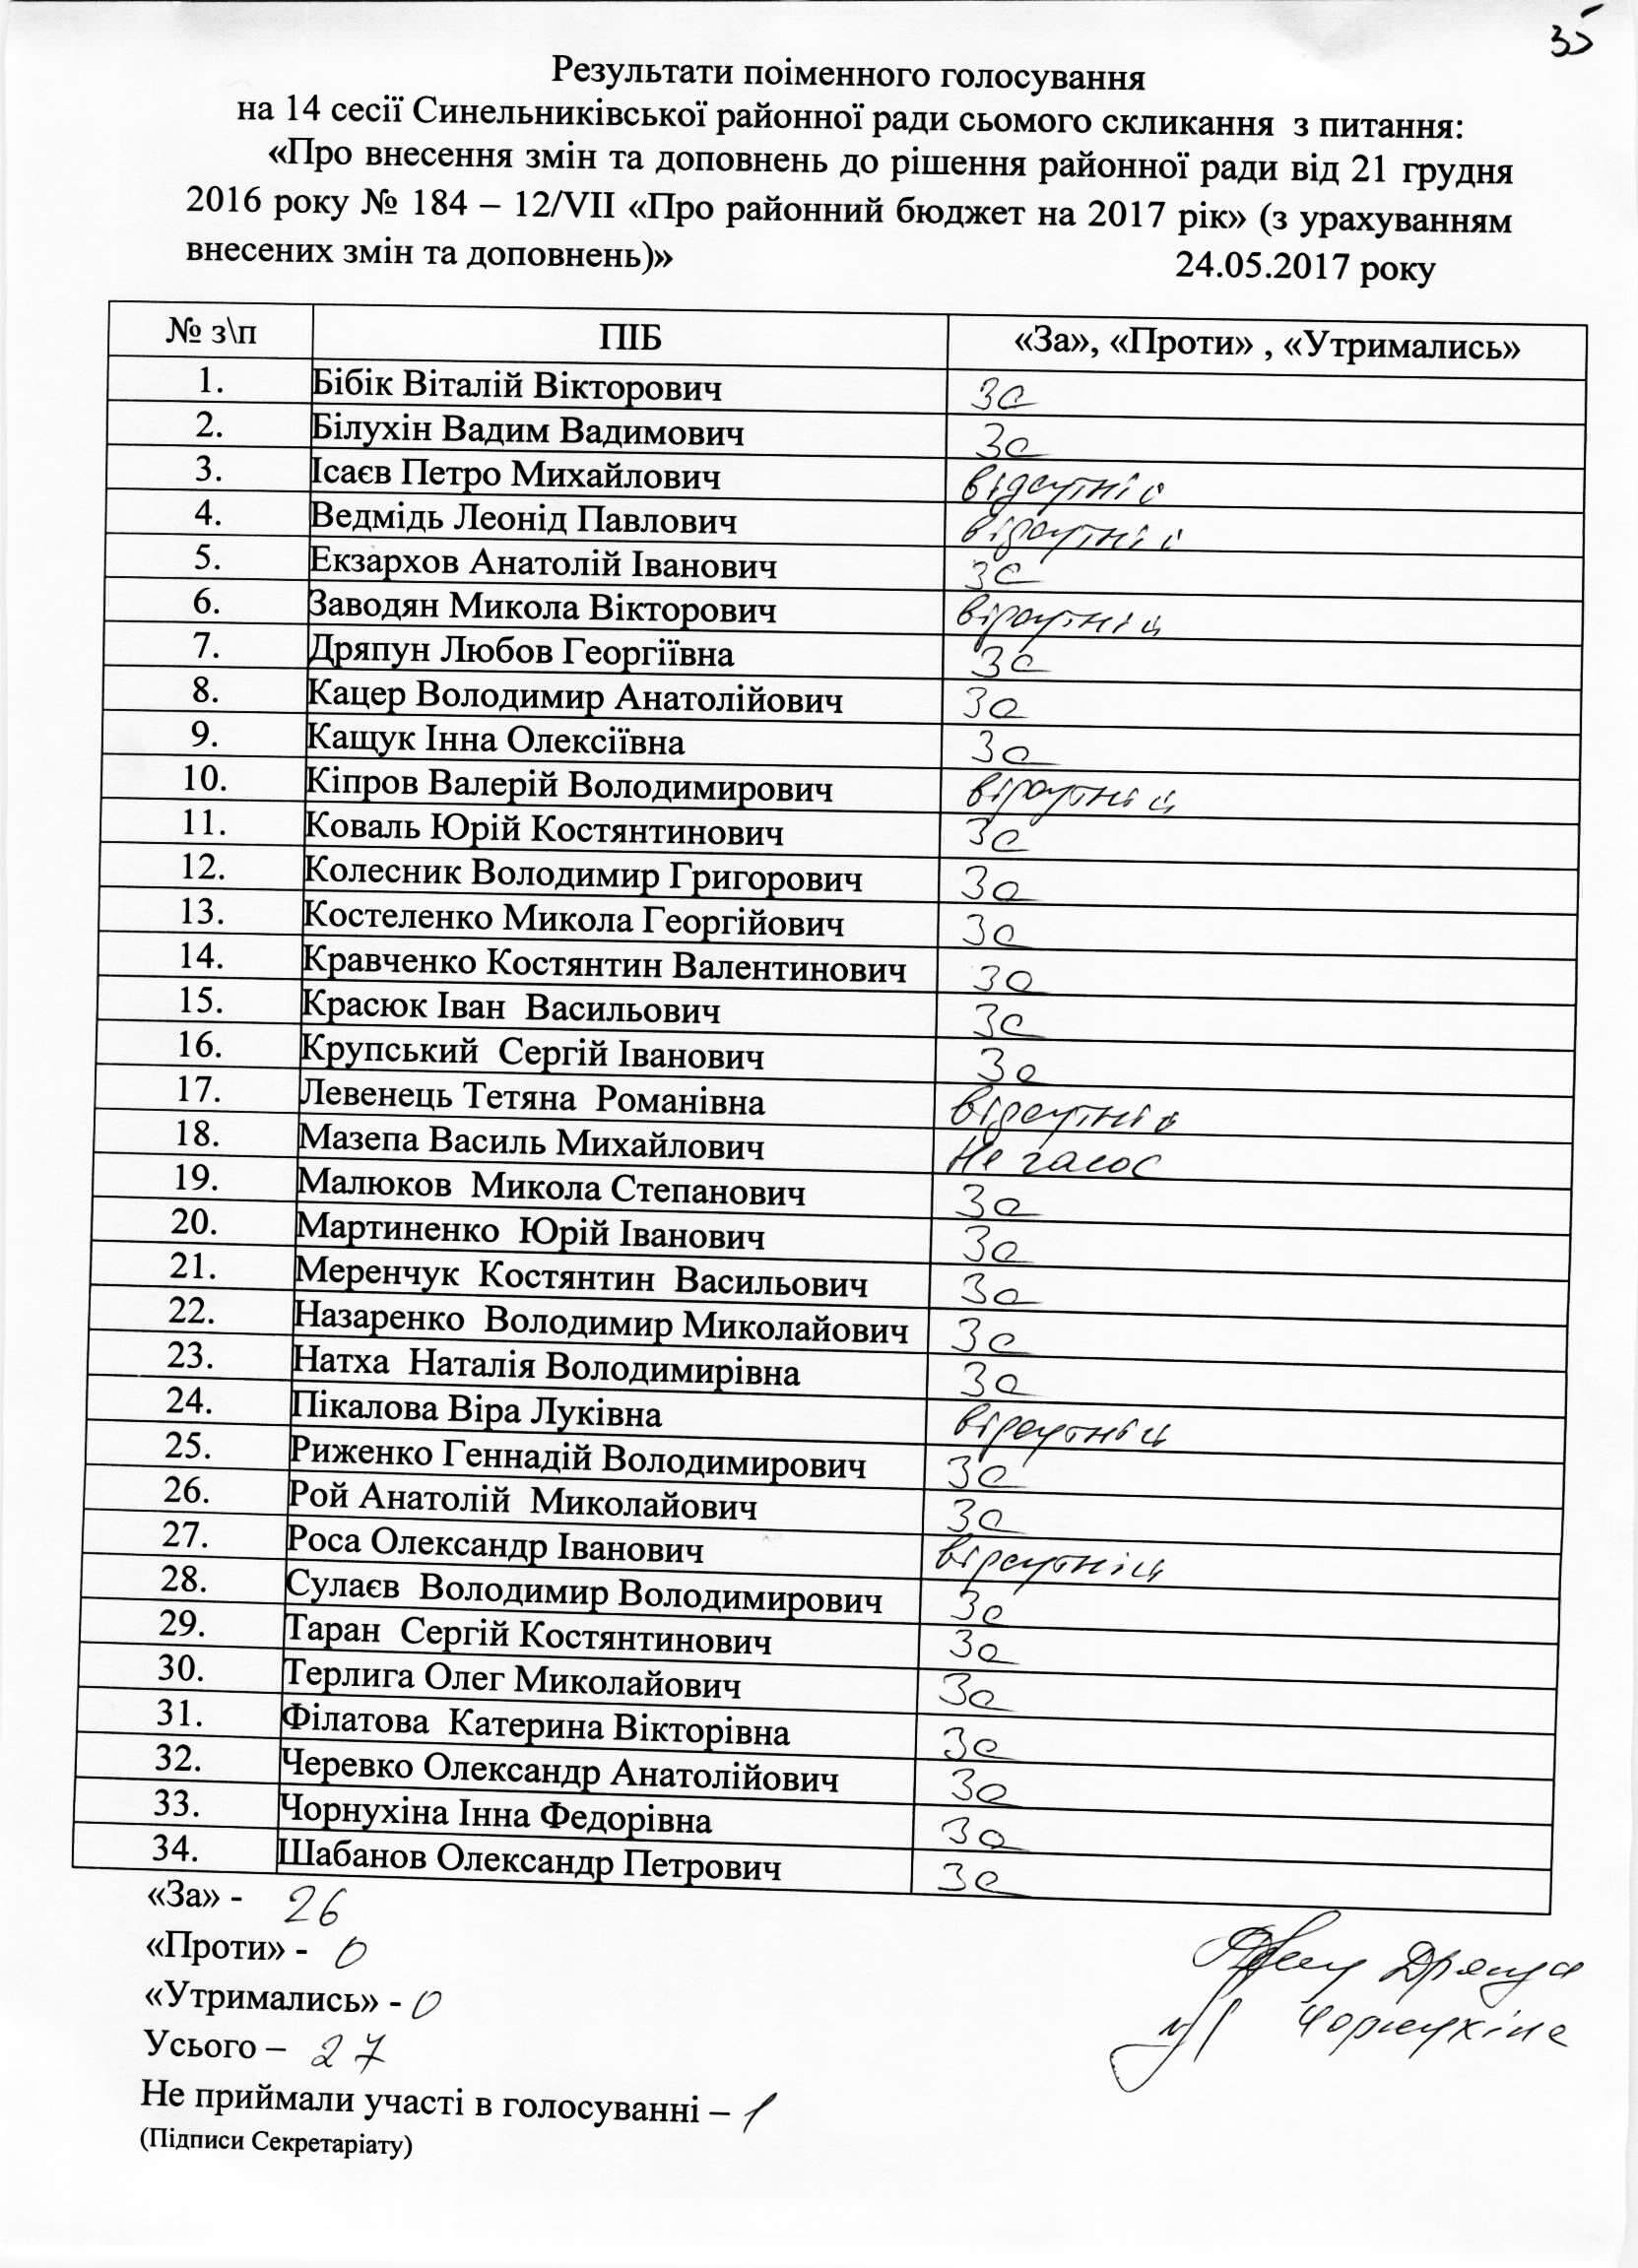 35
Результати поіменного голосування
на 14 сесії Синельниківської районної ради сьомого скликання з питання:
«Про внесення змін та доповнень до рішення районної ради від 21 грудня
2016 року № 184 – 12/VII «Про районний бюджет на 2017 рік» (з урахуванням
внесених змін та доповнень)» 24.05.2017 року
№ з\п ПІБ «За», «Проти» , «Утримались»
1. Бібік Віталій Вікторович За
2. Білухін Вадим Вадимович За
3. Ісаєв Петро Михайлович відсутній
4. Ведмідь Леонід Павлович відсутній
5. Екзархов Анатолій Іванович За
6. Заводян Микола Вікторович відсутній
7. Дряпун Любов Георгіївна За
8. Кацер Володимир Анатолійович За
9. Кащук Інна Олексіївна За
10. Кіпров Валерій Володимирович відсутній
11. Коваль Юрій Костянтинович За
12. Колесник Володимир Григорович За
13. Костеленко Микола Георгійович За
14. Кравченко Костянтин Валентинович За
15. Красюк Іван Васильович За
16. Крупський Сергій Іванович За
17. Левенець Тетяна Романівна відсутній
18. Мазепа Василь Михайлович Не голос
19. Малюков Микола Степанович За
20. Мартиненко Юрій Іванович За
21. Меренчук Костянтин Васильович За
22. Назаренко Володимир Миколайович За
23. Натха Наталія Володимирівна За
24. Пікалова Віра Луківна відсутній
25. Риженко Геннадій Володимирович За
26. Рой Анатолій Миколайович За
27. Роса Олександр Іванович відсутній
28. Сулаєв Володимир Володимирович За
29. Таран Сергій Костянтинович За
30. Терлига Олег Миколайович За
31. Філатова Катерина Вікторівна За
32. Черевко Олександр Анатолійович За
33. Чорнухіна Інна Федорівна За
34. Шабанов Олександр Петрович За
«За» - 26
«Проти» - 0
«Утримались» - 0
Усього – 27
Чорнухіна
Не приймали участі в голосуванні – 1
(Підписи Секретаріату)